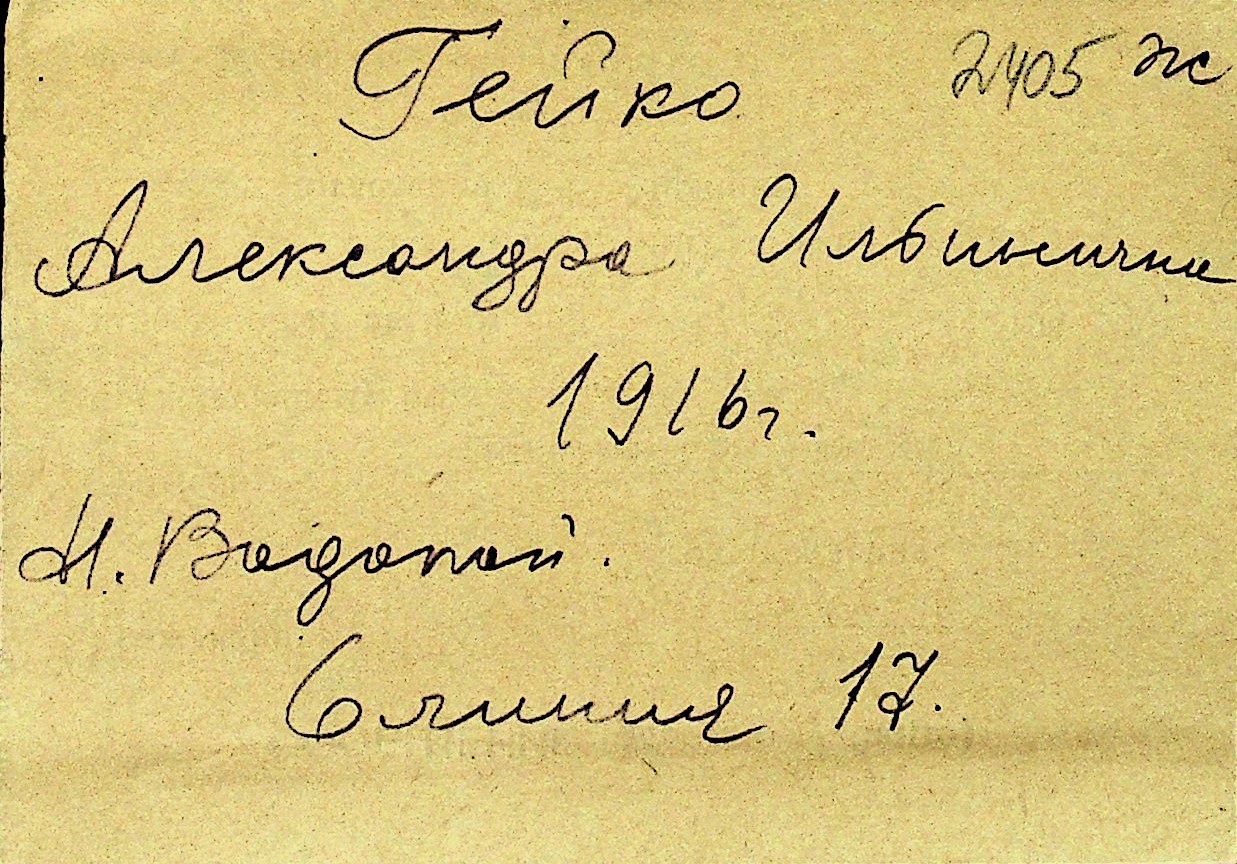 Гейко 2405 ж
Александра Ильинична
1916г.
М. Водопой.
6 линия 17.